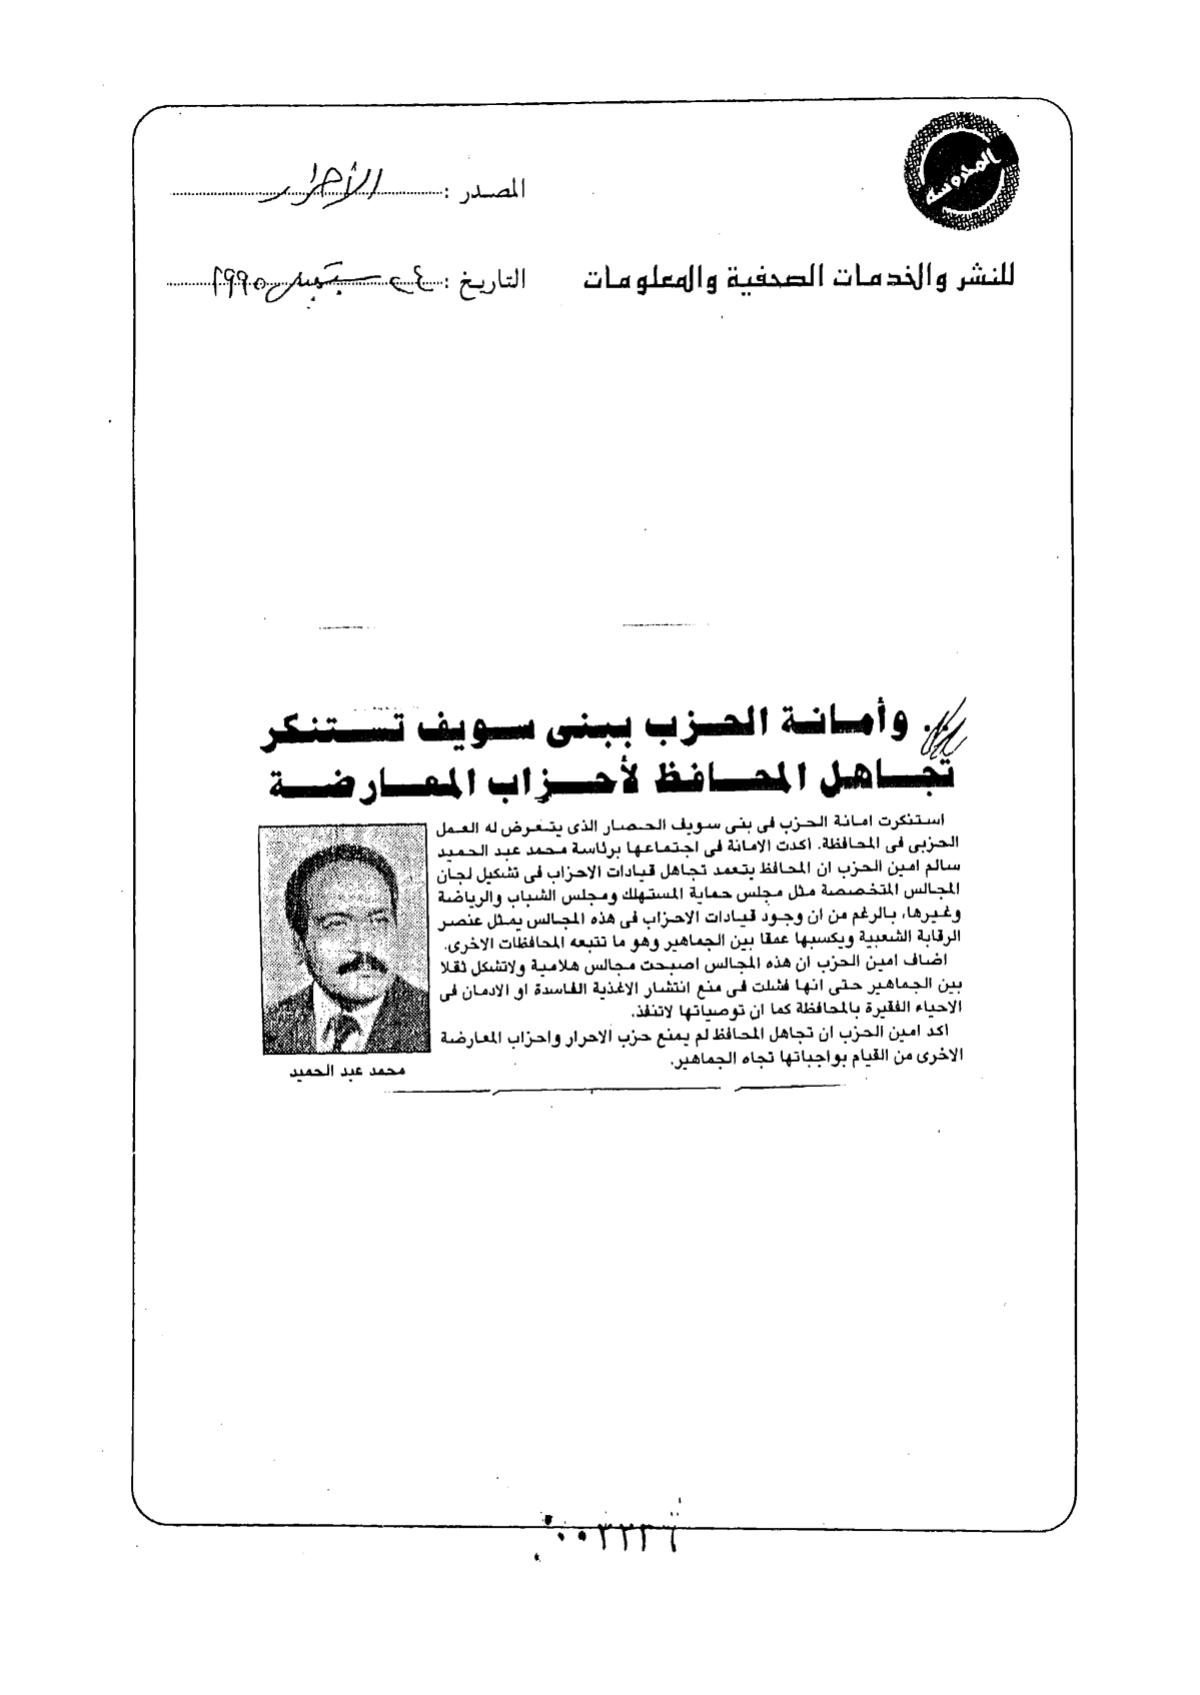 المحروسة
المصدر : الأحرار
للنشر والخدمات الصحفية والمعلومات
التاريخ : ٢٤ سبتمبر ١٩٩٥
.. وأمانة الحزب ببنى سويف تستنكر
تجاهل المحافظ لأحزاب المعارضة
استنكرت امانة الحزب فى بنى سويف الحصار الذى يتعرض له العمل
الحزبى فى المحافظة. أكدت الامانة فى اجتماعها برئاسة محمد عبد الحميد
سالم امين الحزب ان المحافظ يتعمد تجاهل قيادات الاحزاب فى تشكيل لجان
المجالس المتخصصة مثل مجلس حماية المستهلك ومجلس الشباب والرياضة
وغيرها، بالرغم من ان وجود قيادات الاحزاب فى هذه المجالس يمثل عنصر
الرقابة الشعبية ويكسبها عمقا بين الجماهير وهو ما تتبعه المحافظات الاخرى.
اضاف امين الحزب ان هذه المجالس اصبحت مجالس هلامية ولاتشكل ثقلا
بين الجماهير حتى انها فشلت فى منع انتشار الاغذية الفاسدة او الادمان فى
الاحياء الفقيرة بالمحافظة كما ان توصياتها لاتنفذ.
أكد امين الحزب ان تجاهل المحافظ لم يمنع حزب الاحرار واحزاب المعارضة
الاخرى من القيام بواجباتها تجاه الجماهير.
محمد عبد الحميد